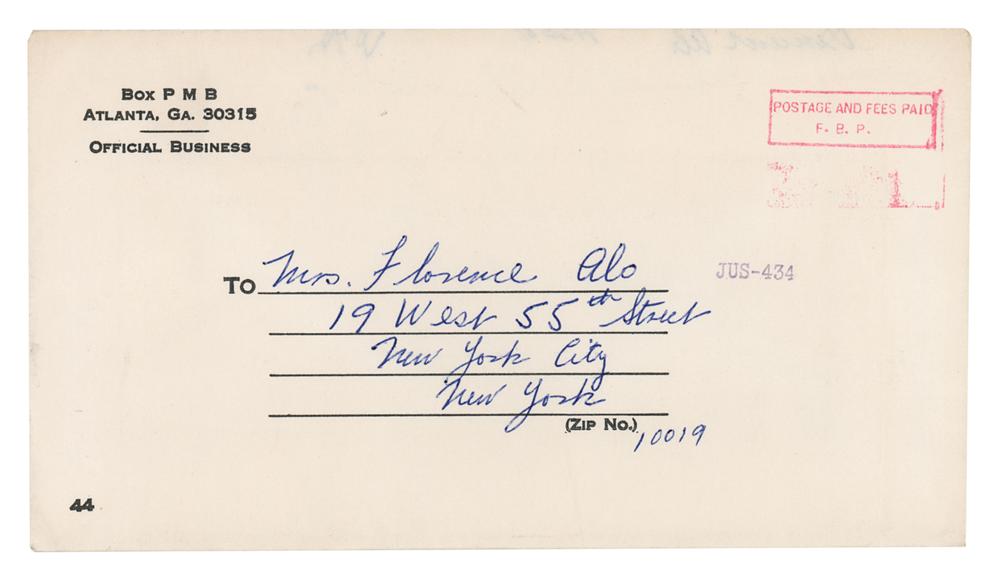 BOX P M B
ATLANTA, GA. 30315
OFFICIAL BUSINESS
POSTAGE AND FEES PAID
F. B. P.
1
JUS-434
TO Mrs. Florence Alo
19 West 55th Street
New York City
New York
(ZIP NO.) 10019
44